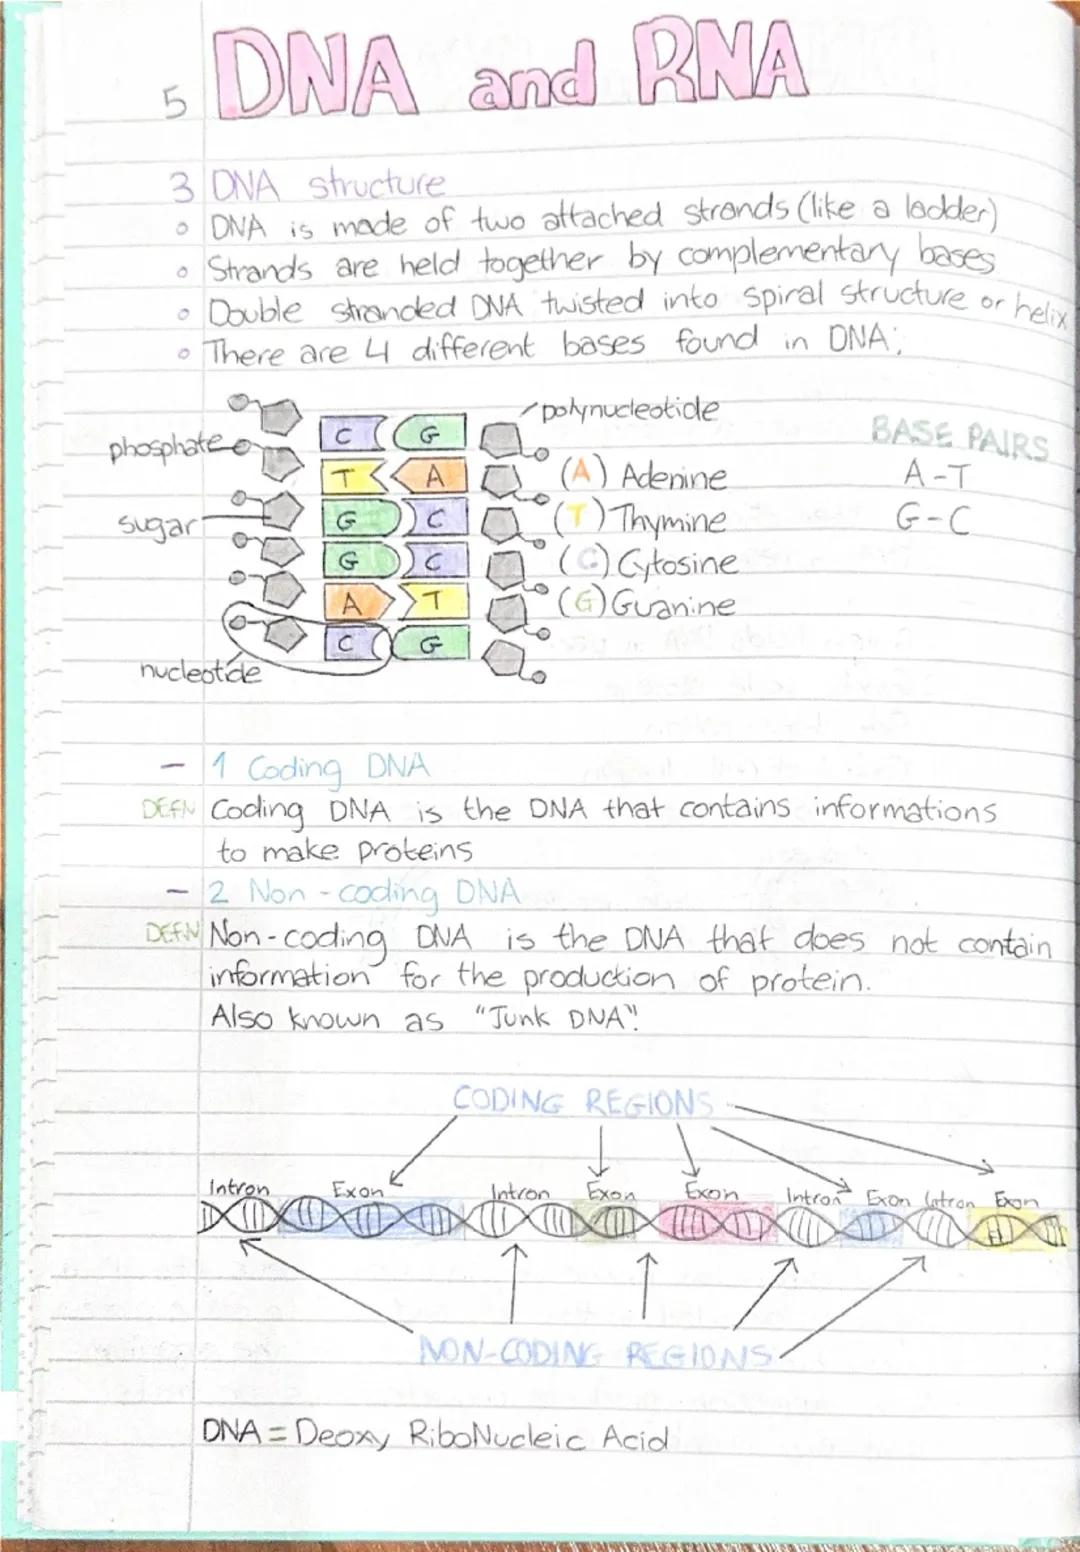 DNA and RNA
5
3 DNA structure
o DNA is made of two attached strands (like a ladder)
o Strands are held together by complementary bases
o Double stranded DNA twisted into spiral structure or helix
o There are 4 different bases found in DNA:
polynucleotide
phosphate
sugar
nucleotide
C G
T A
G C
G C
A T
C G
(A) Adenine
(T) Thymine
(C) Cytosine
(G) Guanine
BASE PAIRS
A-T
G-C
- 1 Coding DNA
DEFN Coding DNA is the DNA that contains informations
to make proteins
- 2 Non-coding DNA
DEFN Non-coding DNA is the DNA that does not contain
information for the production of protein.
Also known as "Junk DNA".
CODING REGIONS
Intron Exon Intron Exon Exon Intron Exon Intron Exon
NON-CODING REGIONS
DNA = Deoxy RiboNucleic Acid